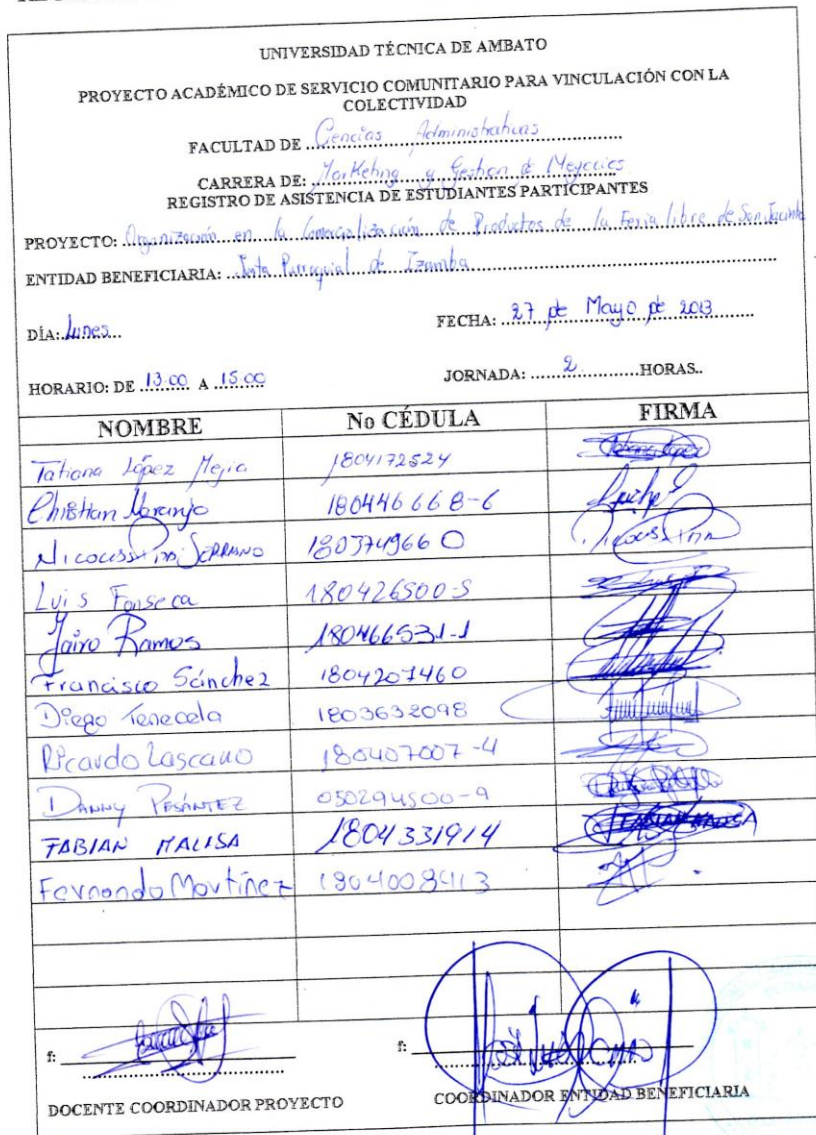 UNIVERSIDAD TÉCNICA DE AMBATO
PROYECTO ACADÉMICO DE SERVICIO COMUNITARIO PARA VINCULACIÓN CON LA
COLECTIVIDAD
FACULTAD DE Ciencias Administrativas
CARRERA DE: Marketing y Gestion de Negocios
REGISTRO DE ASISTENCIA DE ESTUDIANTES PARTICIPANTES
PROYECTO: Organización en la Comercialización de Productos de la Feria libre de San Jacinto
ENTIDAD BENEFICIARIA: Junta Parroquial de Izamba
DÍA: Lunes FECHA: 27 de Mayo de 2013
HORARIO: DE 13:00 A 15:00 JORNADA: 2 HORAS..
NOMBRE No CÉDULA FIRMA
Tatiana López Mejia 1804172524 Tatiana López
Christian Naranjo 180446668-6
Nicouss Pin Serrano 180374966 0 Nicouss Pin
Luis Fonseca 180426500-5
Jairo Ramos 180466531-1
Francisco Sánchez 1804207460
Diego Tenecela 1803632098
Ricardo Lascano 180407007-4
DANNY PESÁNTEZ 050294500-9
FABIAN MALISA 1804331914 FABIAN MALISA
Fernando Martínez 1804008413
f: f:
DOCENTE COORDINADOR PROYECTO COORDINADOR ENTIDAD BENEFICIARIA